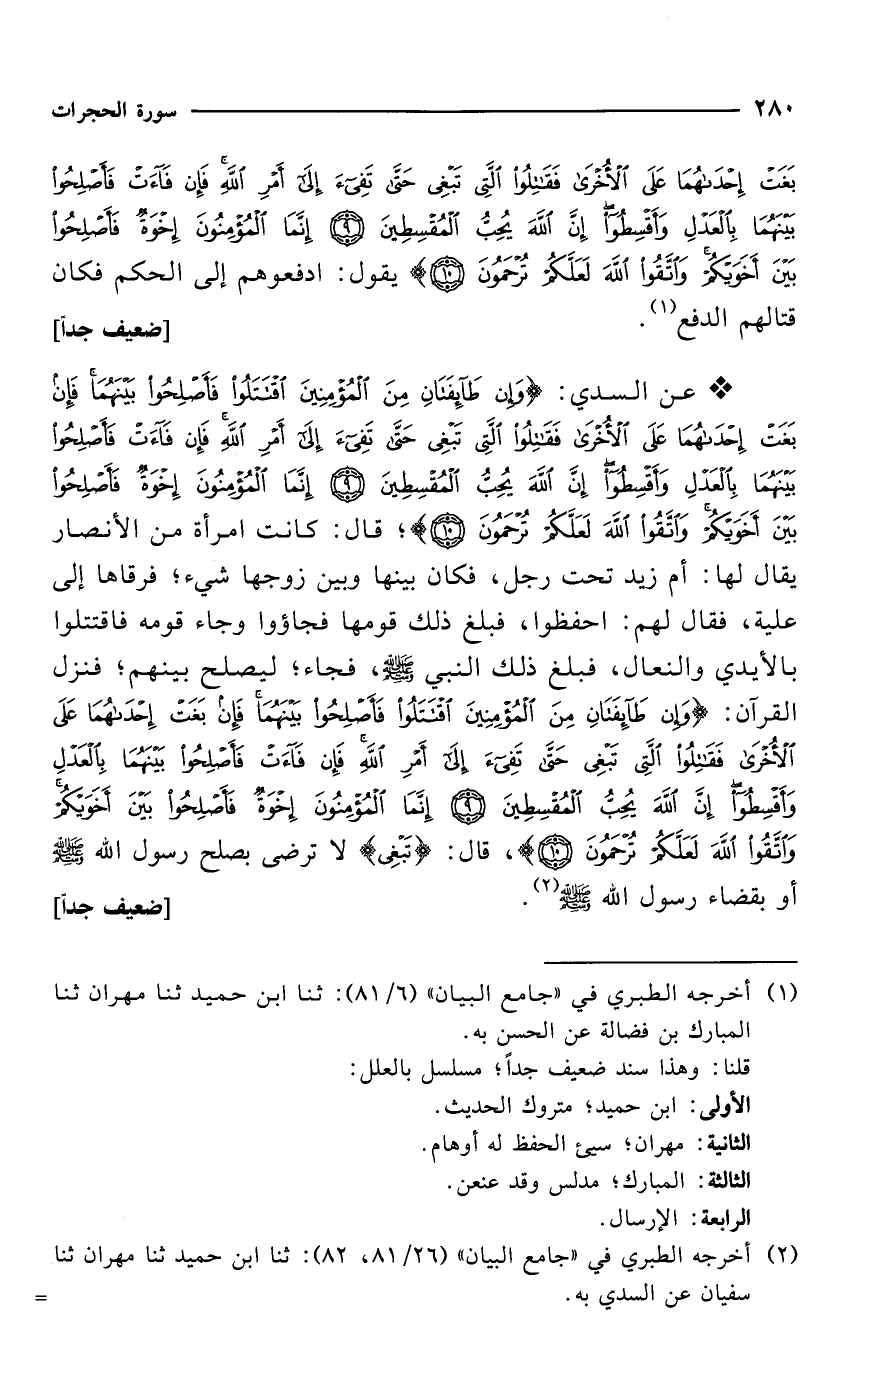 ٢٨٠ سورة الحجرات
بَغَتْ إِحْدَىٰهُمَا عَلَى ٱلْأُخْرَىٰ فَقَٰتِلُوا۟ ٱلَّتِى تَبْغِى حَتَّىٰ تَفِىٓءَ إِلَىٰٓ أَمْرِ ٱللَّهِ ۚ فَإِن فَآءَتْ فَأَصْلِحُوا۟
بَيْنَهُمَا بِٱلْعَدْلِ وَأَقْسِطُوٓا۟ ۖ إِنَّ ٱللَّهَ يُحِبُّ ٱلْمُقْسِطِينَ ﴿٩﴾ إِنَّمَا ٱلْمُؤْمِنُونَ إِخْوَةٌ فَأَصْلِحُوا۟
بَيْنَ أَخَوَيْكُمْ ۚ وَٱتَّقُوا۟ ٱللَّهَ لَعَلَّكُمْ تُرْحَمُونَ ﴿١٠﴾﴾ يقول: ادفعوهم إلى الحكم فكان
قتالهم الدفع(١). [ضعيف جداً]
❖ عن السدي: ﴿وَإِن طَآئِفَتَانِ مِنَ ٱلْمُؤْمِنِينَ ٱقْتَتَلُوا۟ فَأَصْلِحُوا۟ بَيْنَهُمَا ۖ فَإِنۢ
بَغَتْ إِحْدَىٰهُمَا عَلَى ٱلْأُخْرَىٰ فَقَٰتِلُوا۟ ٱلَّتِى تَبْغِى حَتَّىٰ تَفِىٓءَ إِلَىٰٓ أَمْرِ ٱللَّهِ ۚ فَإِن فَآءَتْ فَأَصْلِحُوا۟
بَيْنَهُمَا بِٱلْعَدْلِ وَأَقْسِطُوٓا۟ ۖ إِنَّ ٱللَّهَ يُحِبُّ ٱلْمُقْسِطِينَ ﴿٩﴾ إِنَّمَا ٱلْمُؤْمِنُونَ إِخْوَةٌ فَأَصْلِحُوا۟
بَيْنَ أَخَوَيْكُمْ ۚ وَٱتَّقُوا۟ ٱللَّهَ لَعَلَّكُمْ تُرْحَمُونَ ﴿١٠﴾﴾؛ قال: كانت امرأة من الأنصار
يقال لها: أم زيد تحت رجل، فكان بينها وبين زوجها شيء؛ فرقاها إلى
علية، فقال لهم: احفظوا، فبلغ ذلك قومها فجاؤوا وجاء قومه فاقتتلوا
بالأيدي والنعال، فبلغ ذلك النبي ﷺ، فجاء؛ ليصلح بينهم؛ فنزل
القرآن: ﴿وَإِن طَآئِفَتَانِ مِنَ ٱلْمُؤْمِنِينَ ٱقْتَتَلُوا۟ فَأَصْلِحُوا۟ بَيْنَهُمَا ۖ فَإِنۢ بَغَتْ إِحْدَىٰهُمَا عَلَى
ٱلْأُخْرَىٰ فَقَٰتِلُوا۟ ٱلَّتِى تَبْغِى حَتَّىٰ تَفِىٓءَ إِلَىٰٓ أَمْرِ ٱللَّهِ ۚ فَإِن فَآءَتْ فَأَصْلِحُوا۟ بَيْنَهُمَا بِٱلْعَدْلِ
وَأَقْسِطُوٓا۟ ۖ إِنَّ ٱللَّهَ يُحِبُّ ٱلْمُقْسِطِينَ ﴿٩﴾ إِنَّمَا ٱلْمُؤْمِنُونَ إِخْوَةٌ فَأَصْلِحُوا۟ بَيْنَ أَخَوَيْكُمْ ۚ
وَٱتَّقُوا۟ ٱللَّهَ لَعَلَّكُمْ تُرْحَمُونَ ﴿١٠﴾﴾، قال: ﴿تَبْغِى﴾ لا ترضى بصلح رسول الله ﷺ
أو بقضاء رسول الله ﷺ(٢). [ضعيف جداً]
(١) أخرجه الطبري في «جامع البيان» (٨١/٦): ثنا ابن حميد ثنا مهران ثنا
المبارك بن فضالة عن الحسن به.
قلنا: وهذا سند ضعيف جداً؛ مسلسل بالعلل:
الأولى: ابن حميد؛ متروك الحديث.
الثانية: مهران؛ سيئ الحفظ له أوهام.
الثالثة: المبارك؛ مدلس وقد عنعن.
الرابعة: الإرسال.
(٢) أخرجه الطبري في «جامع البيان» (٨١/٢٦، ٨٢): ثنا ابن حميد ثنا مهران ثنا
سفيان عن السدي به. =